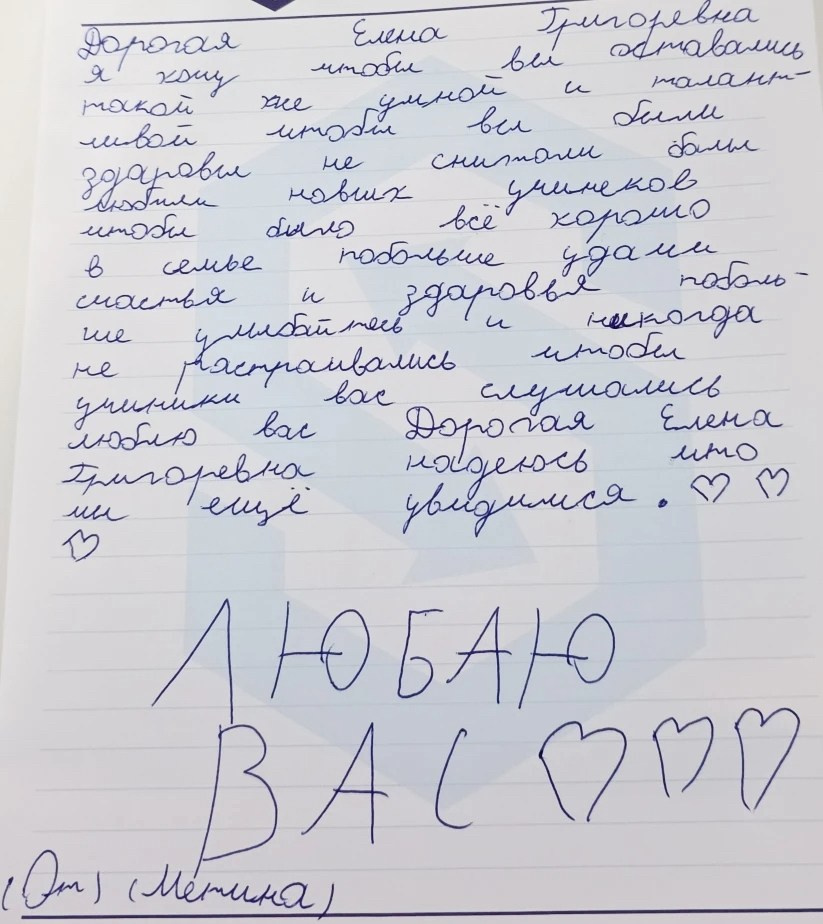 Дорогая Елена Григоревна
я хочу чтобы вы оставались
такой же умной и талант-
ливой чтобы вы были
здаровы не считали балы
любили новых учинеков
чтобы было всё хорошо
в семье побольше удачи
счастья и здаровья поболь-
ше улыбайтесь и никогда
не растраивались чтобы
учиники вас слушались
люблю вас Дорогая Елена
Григоревна надеюсь что
мы ещё увидимся. ♡ ♡
♡
ЛЮБАЮ
ВАС ♡ ♡ ♡
(От) (Метина)